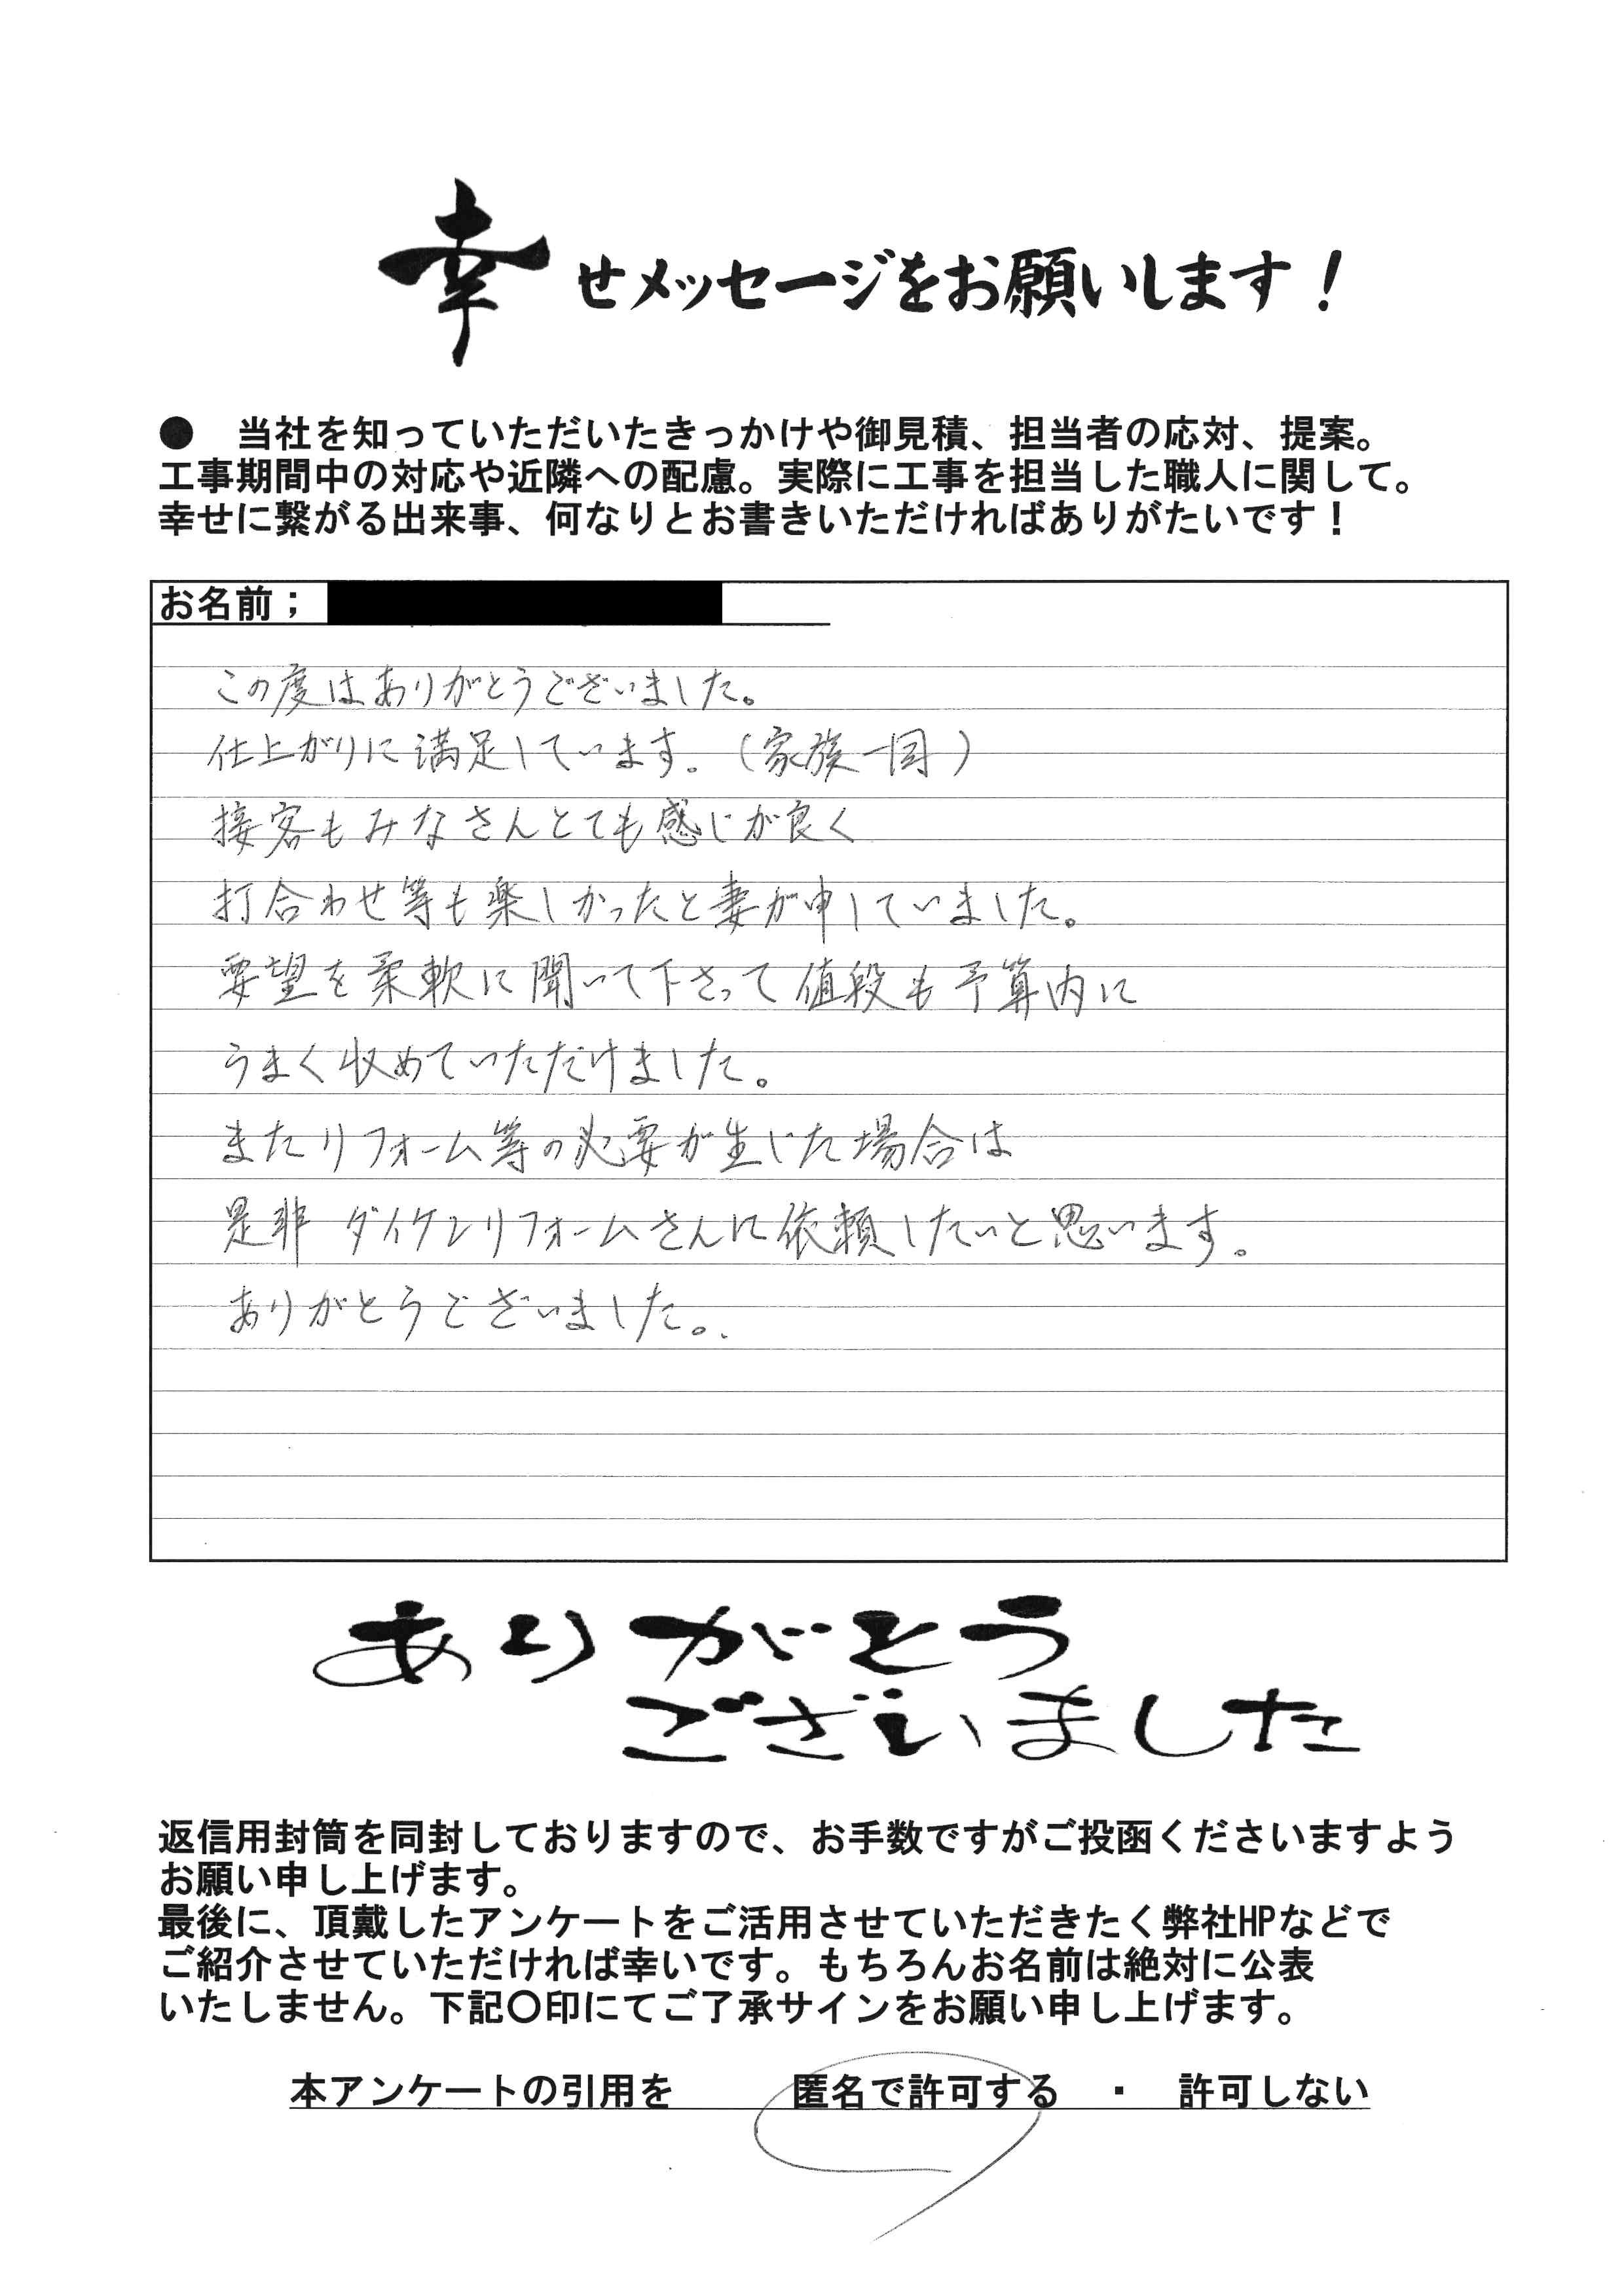 幸せメッセージをお願いします！
●　当社を知っていただいたきっかけや御見積、担当者の応対、提案。
工事期間中の対応や近隣への配慮。実際に工事を担当した職人に関して。
幸せに繋がる出来事、何なりとお書きいただければありがたいです！
お名前；
この度はありがとうございました。
仕上がりに満足しています。（家族一同）
接客もみなさんとても感じが良く
打合わせ等も楽しかったと妻が申していました。
要望を柔軟に聞いて下さって値段も予算内に
うまく収めていただけました。
またリフォーム等の必要が生じた場合は
是非ダイケンリフォームさんに依頼したいと思います。
ありがとうございました。
ありがとう
ございました
返信用封筒を同封しておりますので、お手数ですがご投函くださいますよう
お願い申し上げます。
最後に、頂戴したアンケートをご活用させていただきたく弊社HPなどで
ご紹介させていただければ幸いです。もちろんお名前は絶対に公表
いたしません。下記〇印にてご了承サインをお願い申し上げます。
本アンケートの引用を　　匿名で許可する　・　許可しない